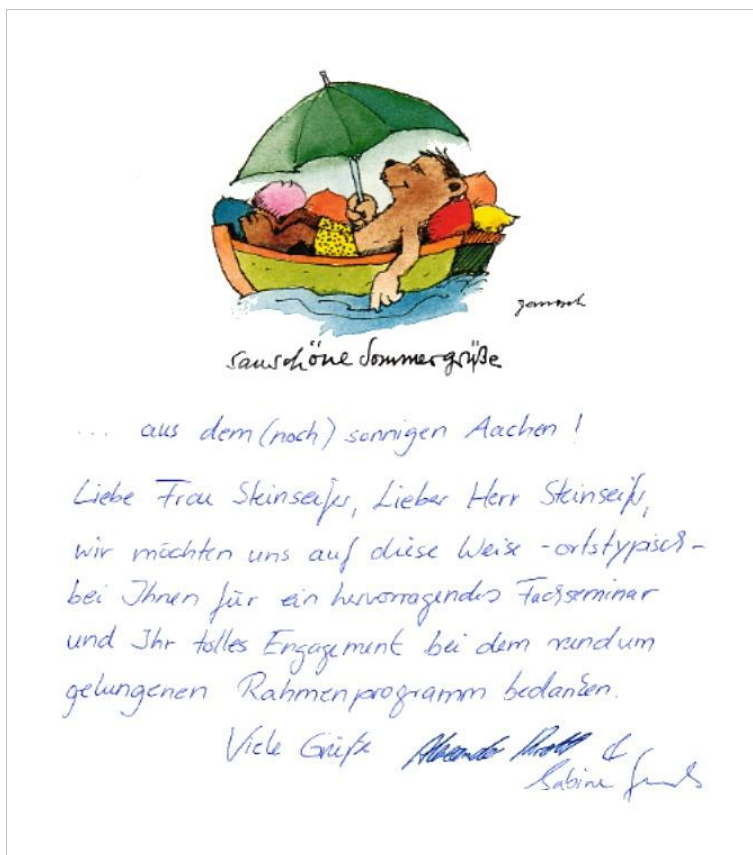 janosch
sauschöne Sommergrüße
... aus dem (noch) sonnigen Aachen!
Liebe Frau Steinseifer, Lieber Herr Steinseifer,
wir möchten uns auf diese Weise -ortstypisch-
bei Ihnen für ein hervorragendes Fachseminar
und Ihr tolles Engagement bei dem rundum
gelungenen Rahmenprogramm bedanken.
Viele Grüße Alexander &
Sabine